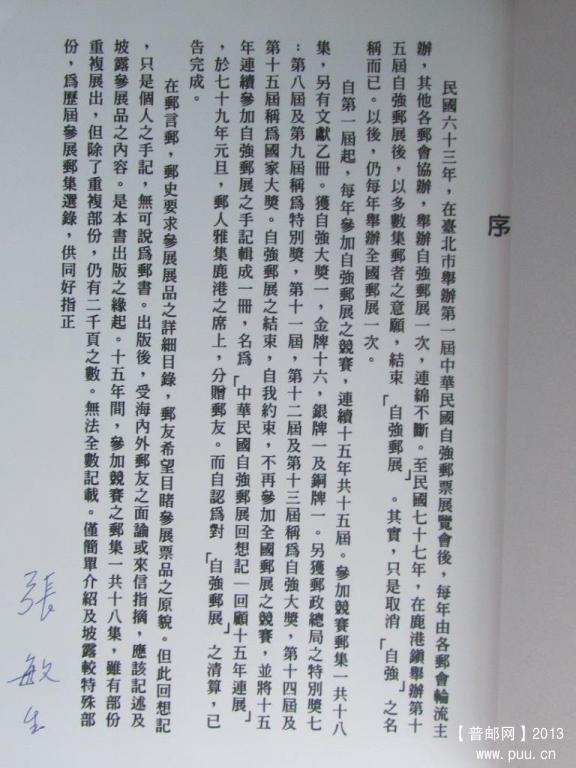 序
民國六十三年，在臺北市舉辦第一屆中華民國自強郵票展覽會後，每年由各郵會輪流主
辦，其他各郵會協辦，舉辦自強郵展一次，連綿不斷。至民國七十七年，在鹿港鎮舉辦第十
五屆自強郵展後，以多數集郵者之意願，結束「自強郵展」。其實，只是取消「自強」之名
稱而已。以後，仍每年舉辦全國郵展一次。
自第一屆起，每年參加自強郵展之競賽，連續十五年共十五屆。參加競賽郵集一共十八
集，另有文獻乙冊。獲自強大獎一，金牌十六，銀牌一及銅牌一。另獲郵政總局之特別獎七
：第八屆及第九屆稱爲特別獎，第十一屆，第十二屆及第十三屆稱爲自強大獎，第十四屆及
第十五屆稱爲國家大獎。自強郵展之結束，自我約束，不再參加全國郵展之競賽，並將十五
年連續參加自強郵展之手記輯成一冊，名爲「中華民國自強郵展回想記—回顧十五年連展」
，於七十九年元旦，郵人雅集鹿港之席上，分贈郵友。而自認爲對「自強郵展」之清算，已
告完成。
在郵言郵，郵史要求參展展品之詳細目錄，郵友希望目睹參展票品之原貌。但此回想記
，只是個人之手記，無可說爲郵書。出版後，受海內外郵友之面諭或來信指摘，應該記述及
坡露參展品之內容。是本書出版之緣起。十五年間，參加競賽之郵集一共十八集，雖有部份
重複展出，但除了重複部份，仍有二千頁之數。無法全數記載。僅簡單介紹及坡露較特殊部
份，爲歷屆參展郵集選錄，供同好指正
張敏生
【普邮网】2013
www.puu.cn